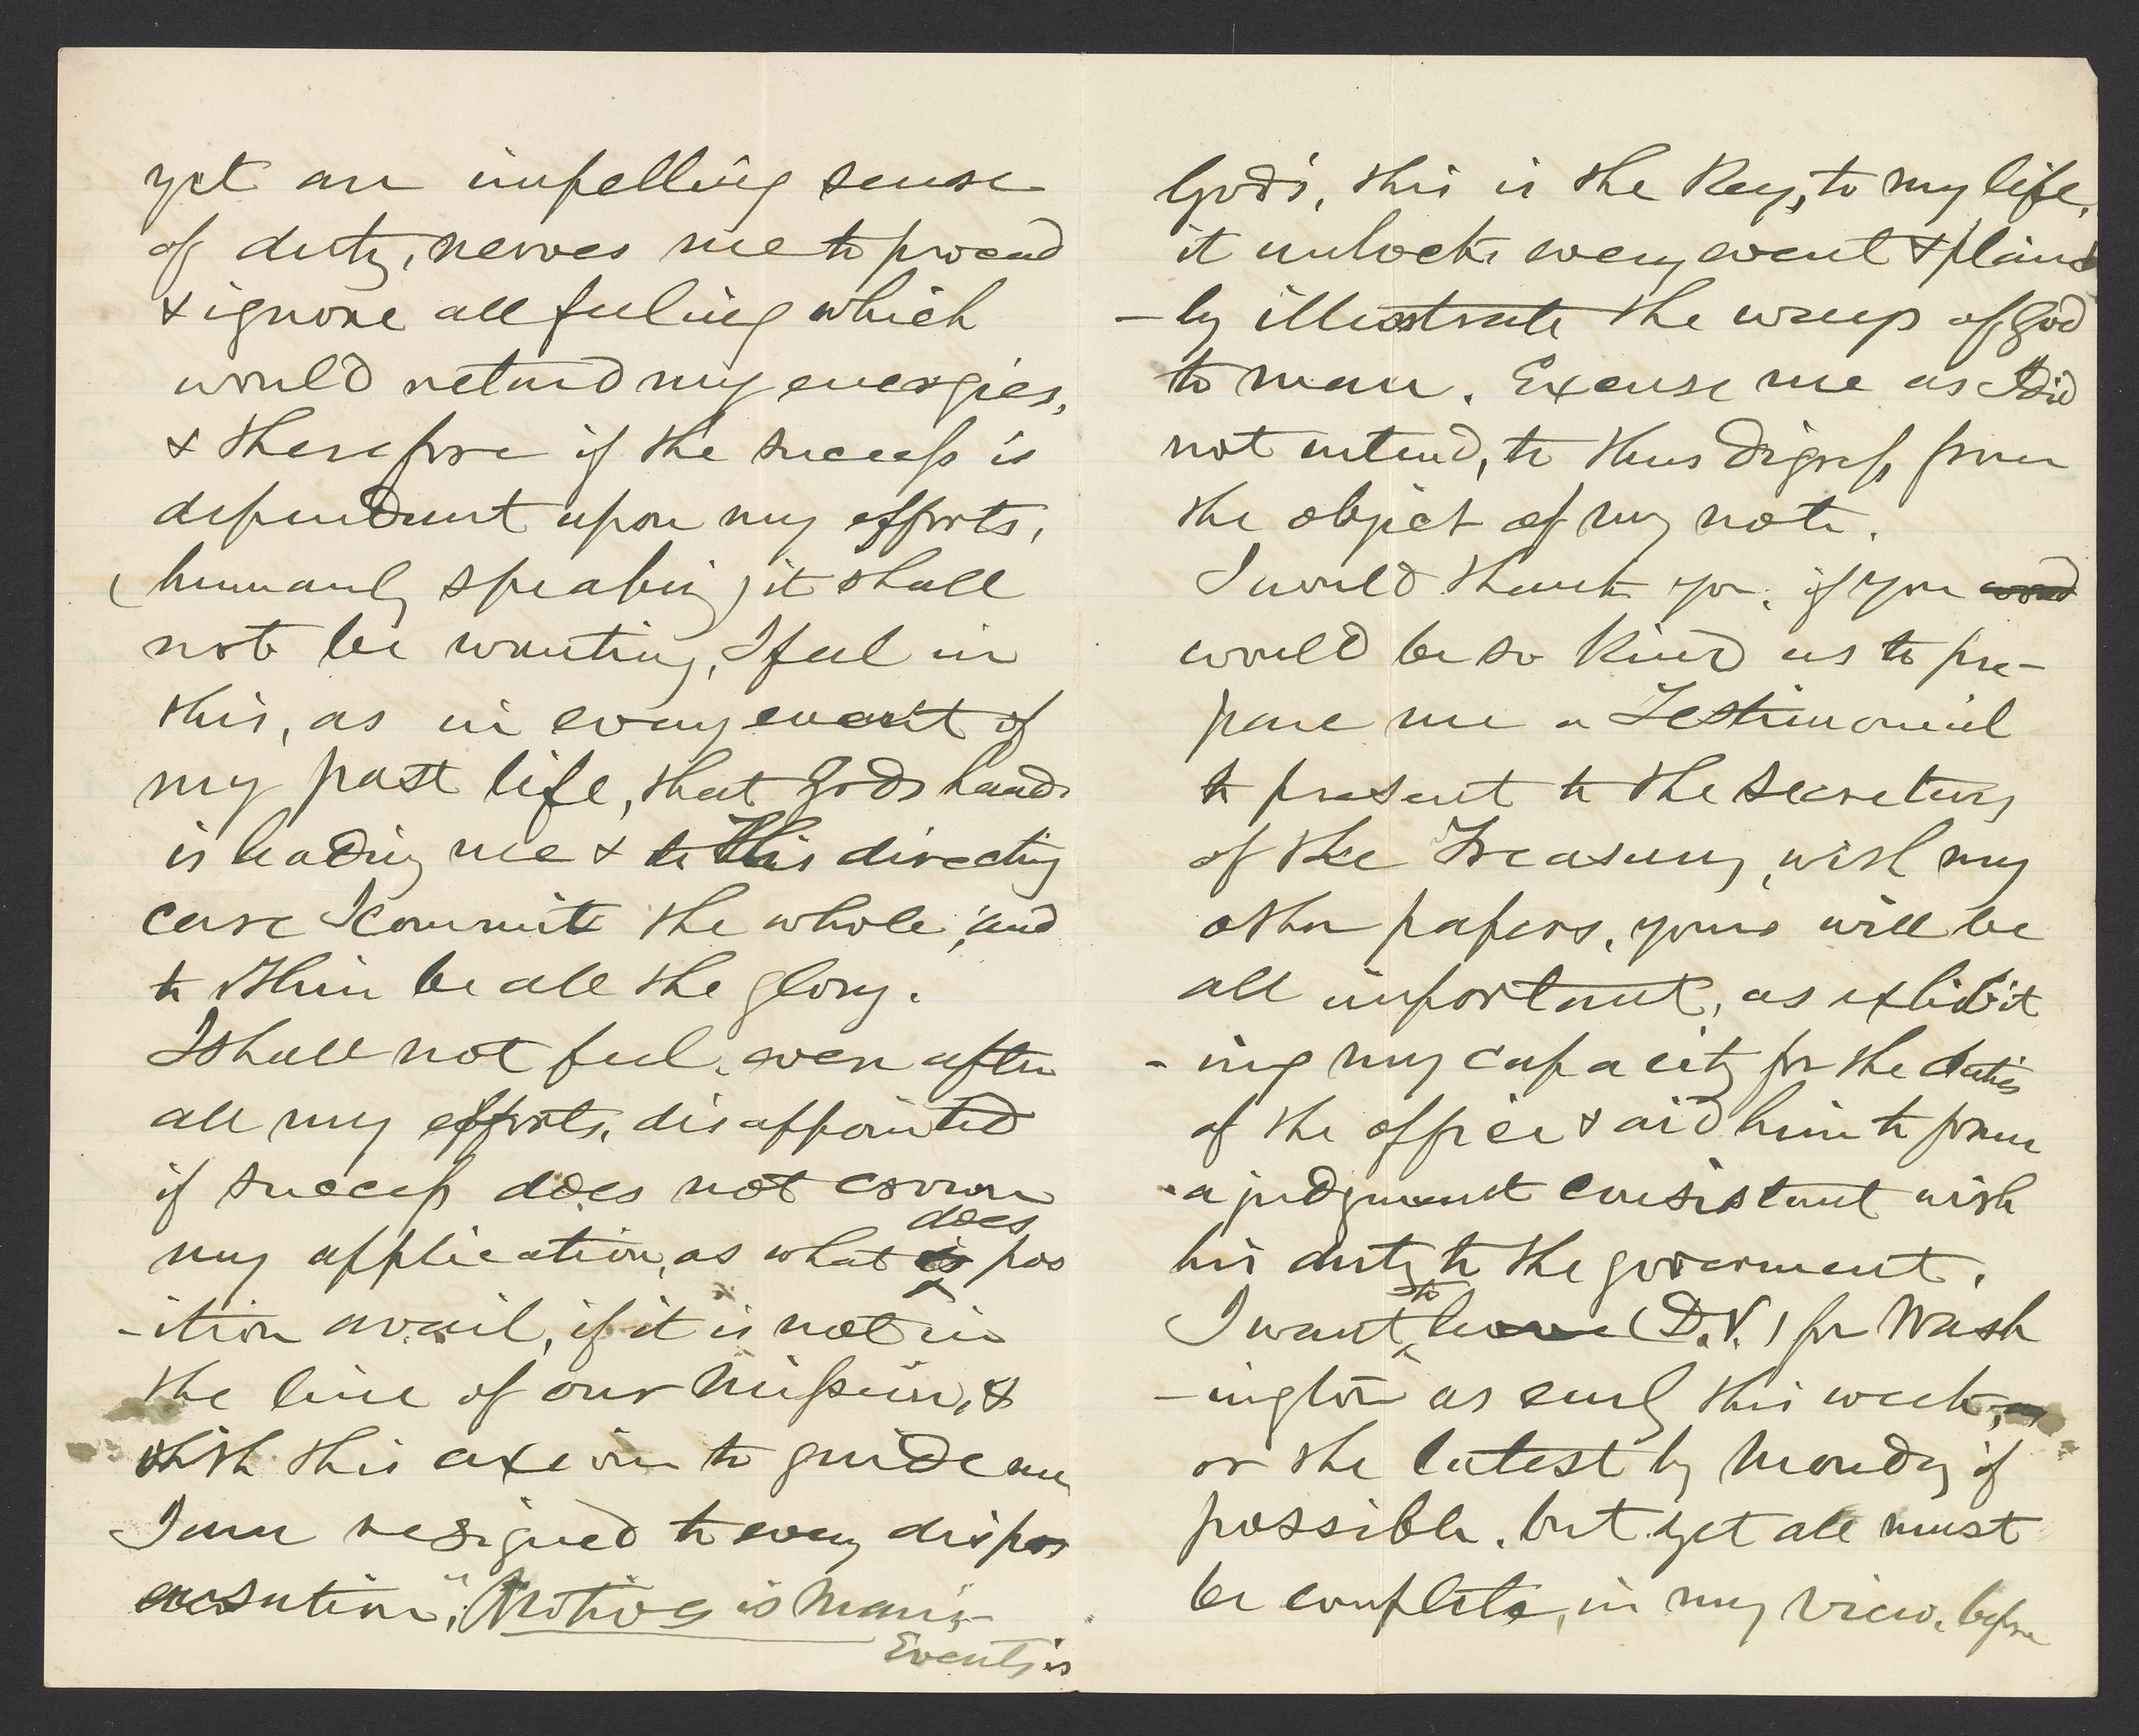 yet an impelling sense
of duty, nerves me to proceed
& ignore all feeling which
would retard my energies,
& therefore if the success is
dependant upon my efforts,
(humanly speaking) it shall
not be wanting, I feel in
this, as in every event of
my past life, that Gods hand
is leading me & to His directing
care I commit the whole, and
to Him be all the glory.
I shall not feel, even after
all my efforts, disappointed
if success does not crown
does
my application, as what is pos
-ition avail, if it is not in
the line of our mission, &
with this axiom to guide me
I am resigned to every dispen
sation, "Motives is Man's
Events is
God's, this is the Key, to my life,
it unlocks every event & plain
-ly illustrate the ways of God
to man. Excuse me as I did
not intend, to thus digress from
the object of my note.
I would thank you, if you
would be so kind as to pre-
pare me a Testimonial
to present to the Secretary
of the Treasury, with my
other papers, yours will be
all important, as exhibit
-ing my capacity for the duties
of the office & aid him to form
a judgment consistant with
his duty to the goverment.
to
I want leave (D.V.) for Wash
-ington as early this week,
or the latest by Monday if
possible. but yet all must
be complete, in my view, before